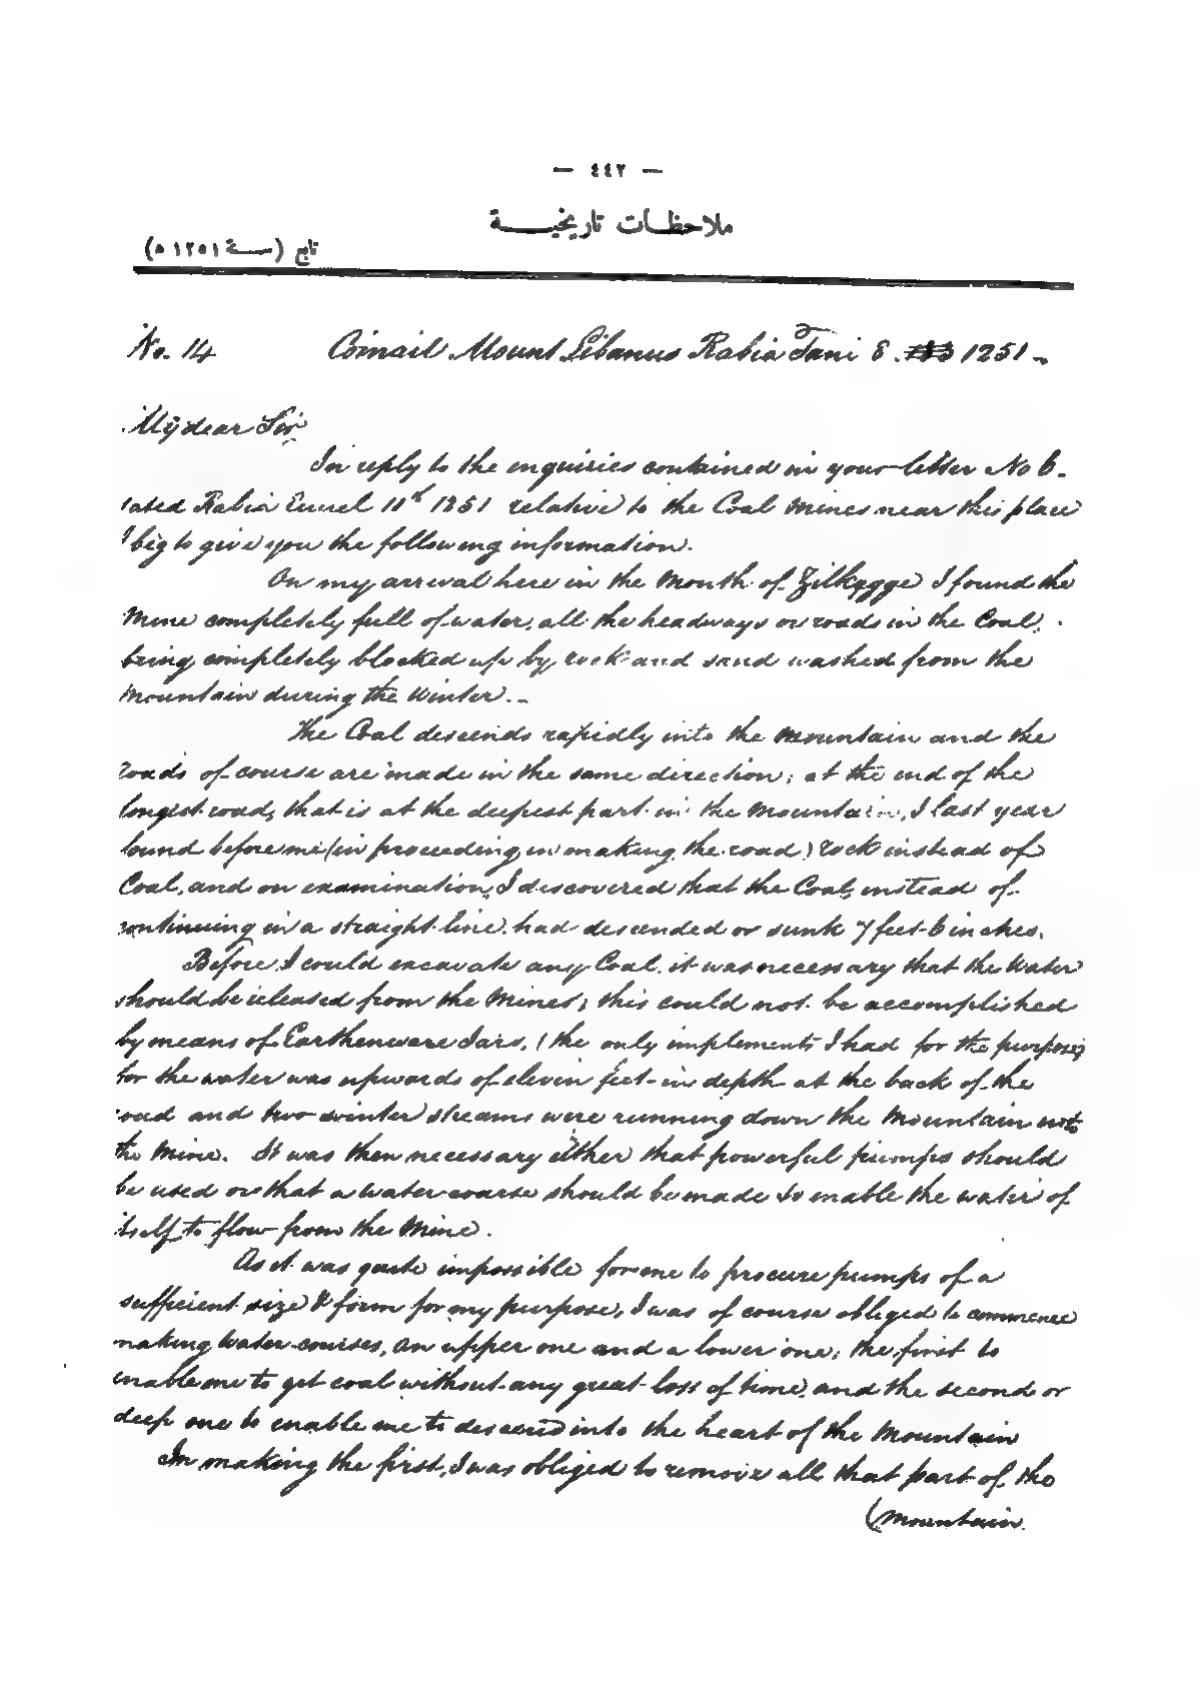 — ٤٤٢ —
ملاحظات تاريخية
تابع (سنة ١٢٥١ ه)
No. 14 Cornail Mount Libanus Rabia Tani 8. 1251 –
My dear Sir
In reply to the enquiries contained in your letter No 6.
dated Rabia Ewel 11th 1251 relative to the Coal Mines near this place
I beg to give you the following information.
On my arrival here in the Month of Zilkegge I found the
Mine completely full of water, all the headways or roads in the Coal
being completely blocked up by rock and sand washed from the
Mountain during the Winter. –
The Coal descends rapidly into the Mountain and the
roads of course are made in the same direction; at the end of the
longest road, that is at the deepest part in the Mountain, I last year
found before me (in proceeding in making the road) rock instead of
Coal, and on examination, I discovered that the Coal, instead of
continuing in a straight line, had descended or sunk 7 feet 6 inches.
Before I could excavate any Coal, it was necessary that the Water
should be released from the Mines; this could not be accomplished
by means of Earthenware Jars, (the only implements I had for the purpose)
for the water was upwards of eleven feet in depth at the back of the
road and two winter streams were running down the Mountain into
the Mine. It was then necessary either that powerful pumps should
be used or that a water coarse should be made to enable the water of
itself to flow from the Mine.
As it was quite impossible for me to procure pumps of a
sufficient size & form for my purpose, I was of course obliged to commence
making Water courses, an upper one and a lower one; the first to
enable me to get coal without any great loss of time, and the second or
deep one to enable me to descend into the heart of the Mountain
In making the first, I was obliged to remove all that part of the
(mountain